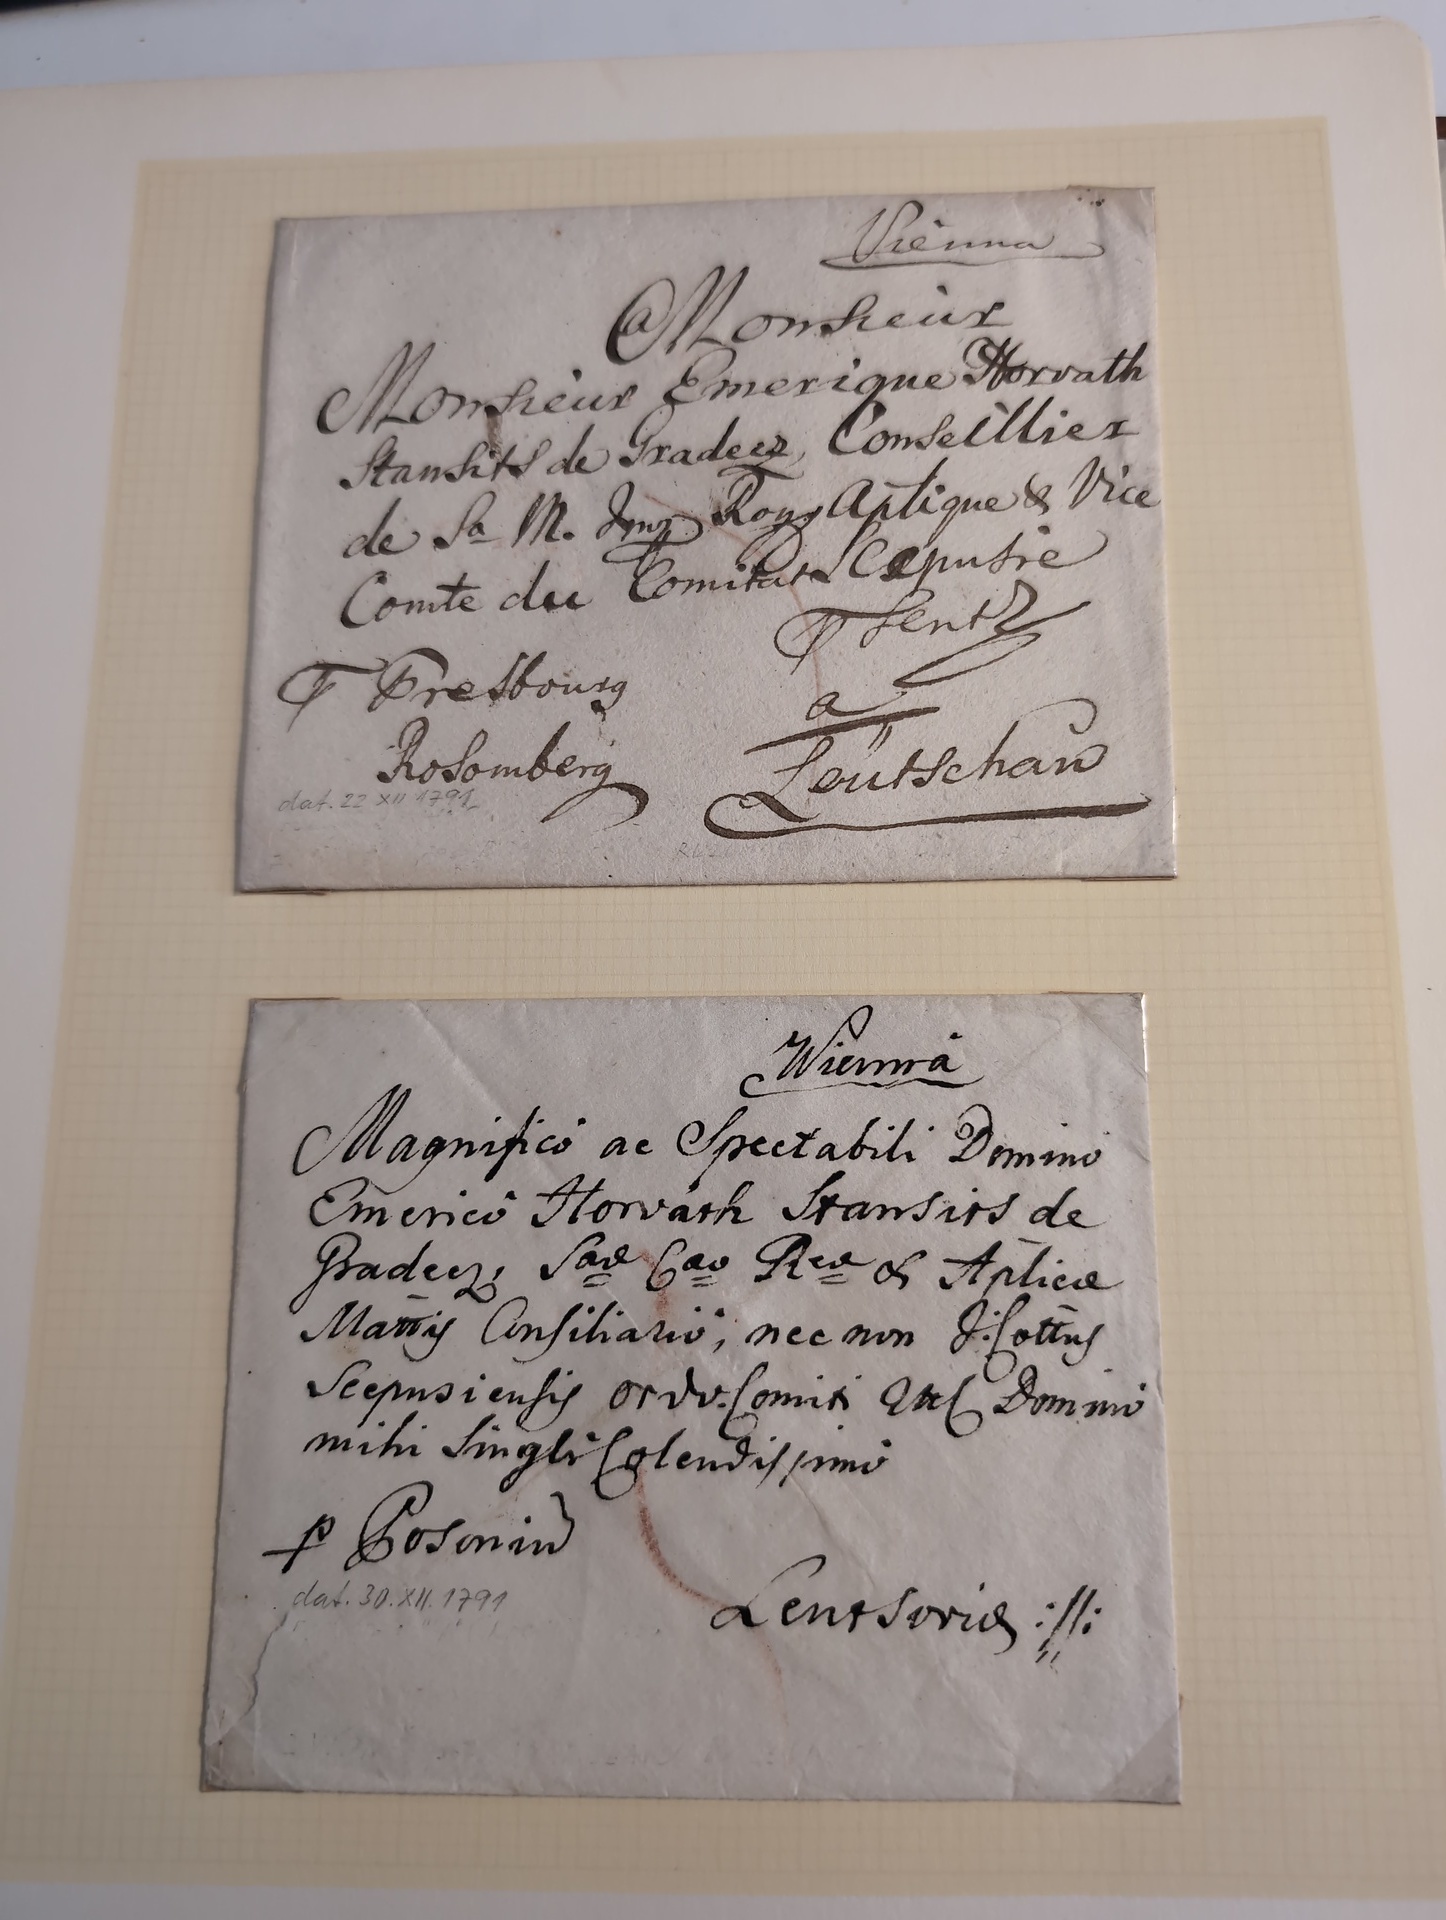 Vienna
a Monsieur
Monsieur Emerique Horvath
Stansits de Gradecz, Conseillier
de Sa M. Imp Roy Aptique & Vice
Comte du Comitat Scepusie
a
Leütschau
Presbourg
Rosomberg
dat. 22 XII 1791
Wienna
Magnifico ac Spectabili Domino
Emerico Horváth Stansits de
Gradecz, Sae Cae Reæ & Aplicæ
Mattis Consiliario, nec non I. Cottus
Scepusiensis ord. v. Comiti Domino
mihi Singlr Colendissimo
p Posoniu
dat. 30. XII. 1791
Leutsoviæ